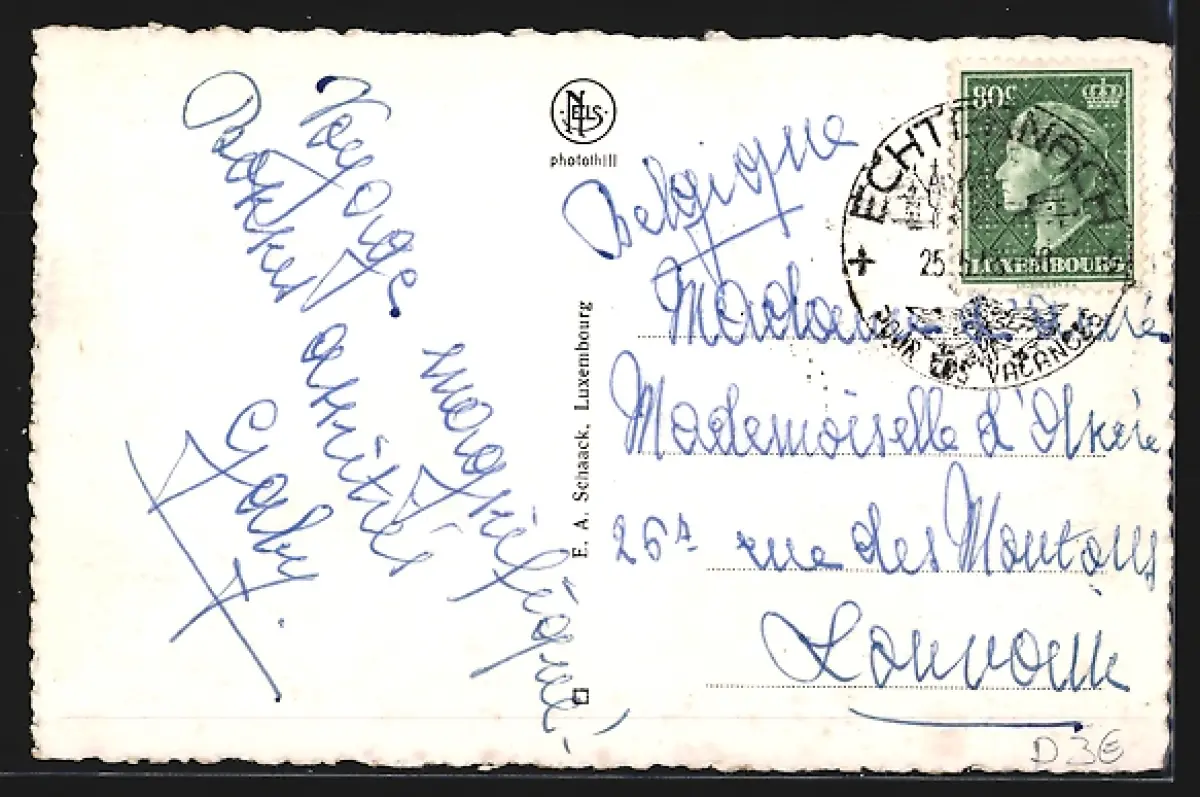 Voyage
magnéfique!
Bonnes amitiés
Gaby.
NELS
photothill
E. A. Schaack, Luxembourg
80c
LUXEMBOURG
ECHTERNACH
25
POUR VOS VACANCES
Belgique
Madame
Mademoiselle
26A rue des Moutons
Louvain
D 3€